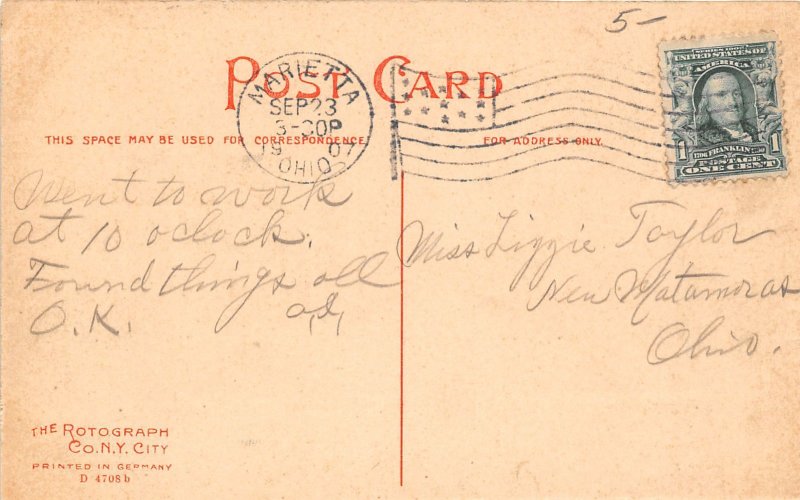 5-
POST CARD
MARIETTA
SEP 23
3-30P
1907
OHIO
SERIES 1902
UNITED STATES OF
AMERICA
1 1
FRANKLIN
POSTAGE
ONE CENT
THIS SPACE MAY BE USED FOR CORRESPONDENCE
FOR ADDRESS ONLY.
Went to work
at 10 oclock.
Found things all
O.K.
Miss Lizzie Taylor
New Matamoras
Ohio.
THE ROTOGRAPH
CO. N.Y. CITY
PRINTED IN GERMANY
D 4708 b